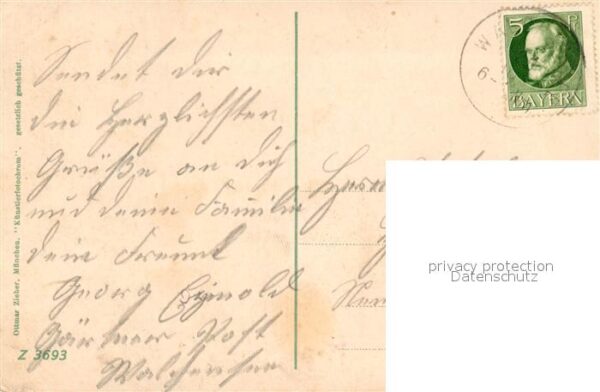 Sendet dir
die herzlichsten
Grüße an dich
und deine Familie
dein Freund
Georg
Gärtner Post
Walchensee
Ottmar Zieher, München. "Künstlerfotochrom". gesetzlich geschützt.
Z 3693
W
6
5 Pf
BAYERN
Herrn
privacy protection
Datenschutz